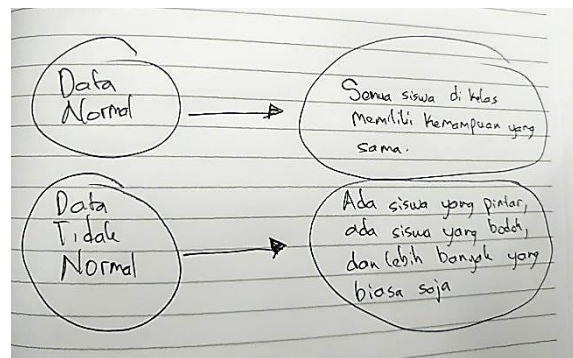 Data
Normal
Semua siswa di kelas
memiliki kemampuan yang
sama.
Data
Tidak
Normal
Ada siswa yang pintar,
ada siswa yang bodoh,
dan lebih banyak yang
biasa saja